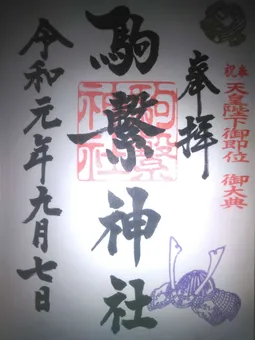 祝奉 天皇陛下御即位 御大典
奉拝
駒繋神社
駒繋神社
令和元年九月七日